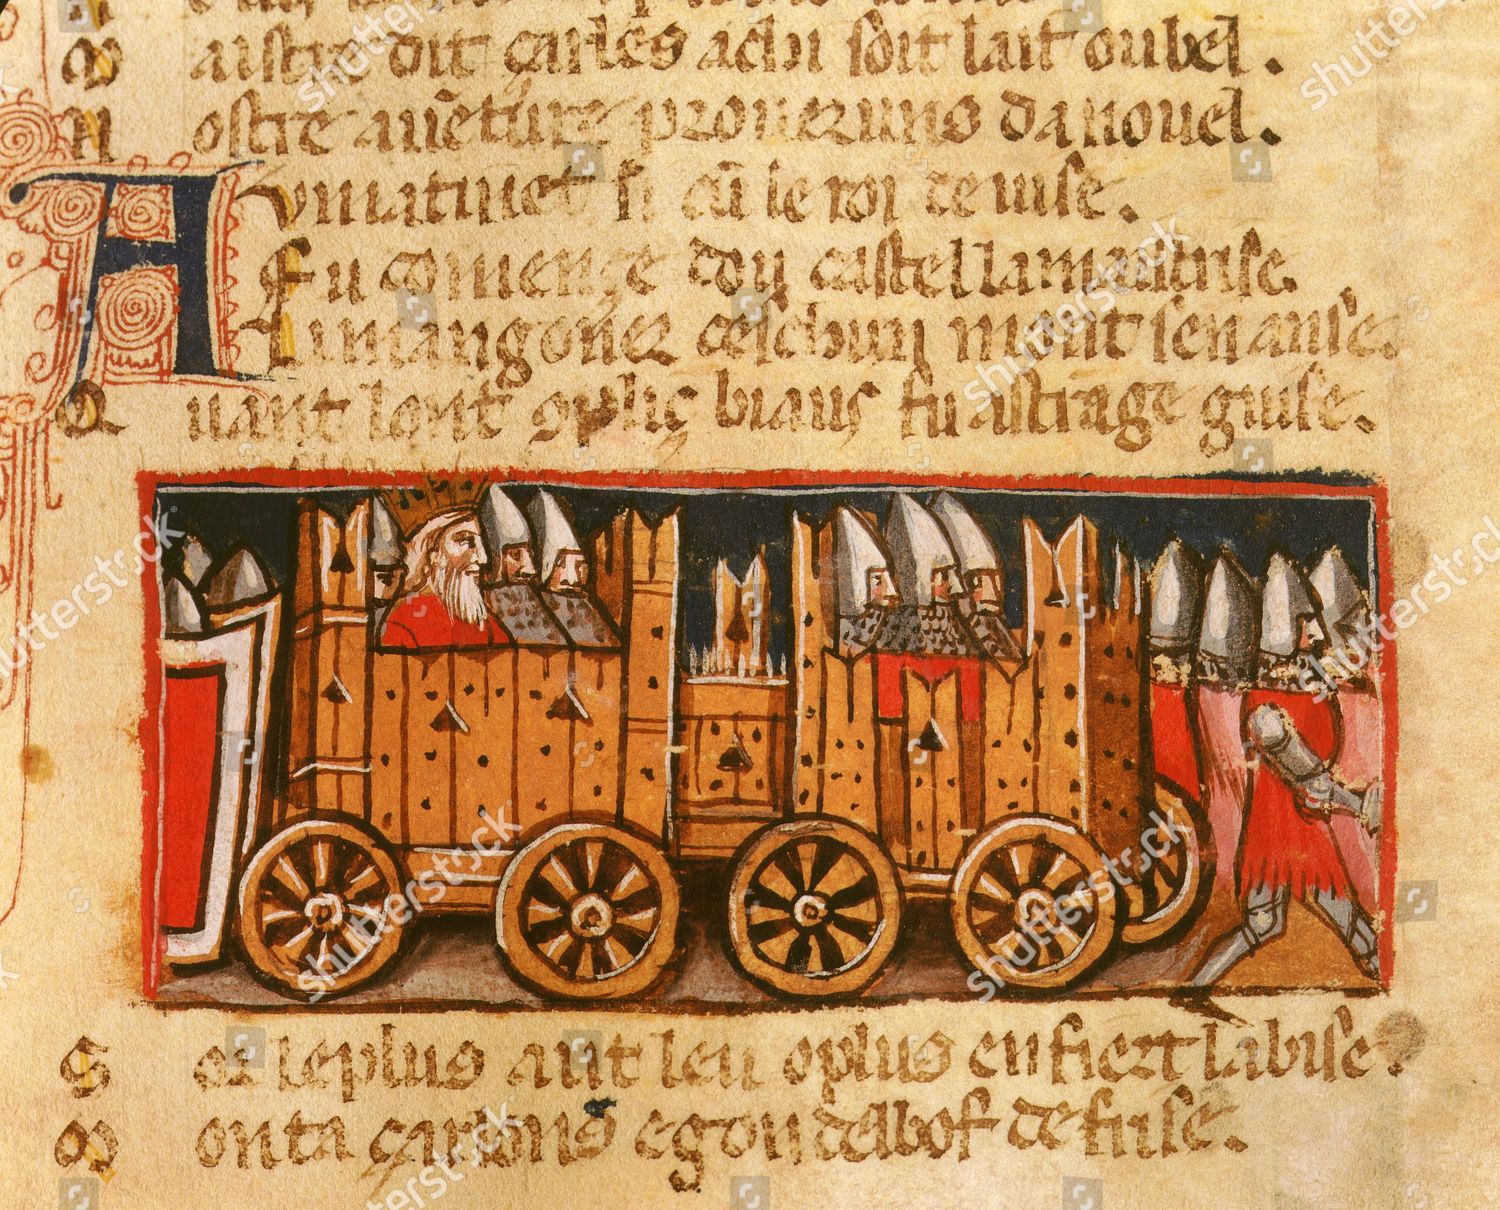 M aistre dit çarles achi soit lait oubel.
N ostre auēture proueruns da nouel.
A vmatinet si cū le roi deuise.
Fu començe dou castel lamaistrise.
Li mangoner deschun mont sen anse.
Q uant lont oplis biaus fu astrage guise.
S or le plus aut leu oplus en fiert la bise.
M onta çarlons e gondelbof de frise.
shutterstock